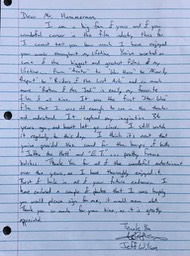 Dear Mr. Hammerman,
I am a big fan of yours and of your
wonderful career in the film industry. There
I cannot tell you how much I have enjoyed
your work throughout my lifetime. You've worked on
some of the biggest and greatest films of my
lifetime. From "Tootsie" to "Die Hard" to
to "Raiders of the Lost Ark" and so much
more. "Return of the Jedi" is easily my favorite
film of all time. It was the first "Star Wars"
film that I was old enough to see in the theater
and understand. It captured my imagination
years ago, and hasn't let go since. I still watch
it regularly to this day. I think it's neat that
you've provided the sound for the
of both
and "E.T."
Thank you for all of the wonderful entertainment
over the years, as I have thoroughly enjoyed it.
Best of luck in all of your future endeavors. I
have enclosed a couple of photos that I was hoping
you would please sign for me, it would mean alot.
Thank you so much for your time, as it is greatly
appreciated.
Thank You
Jeff